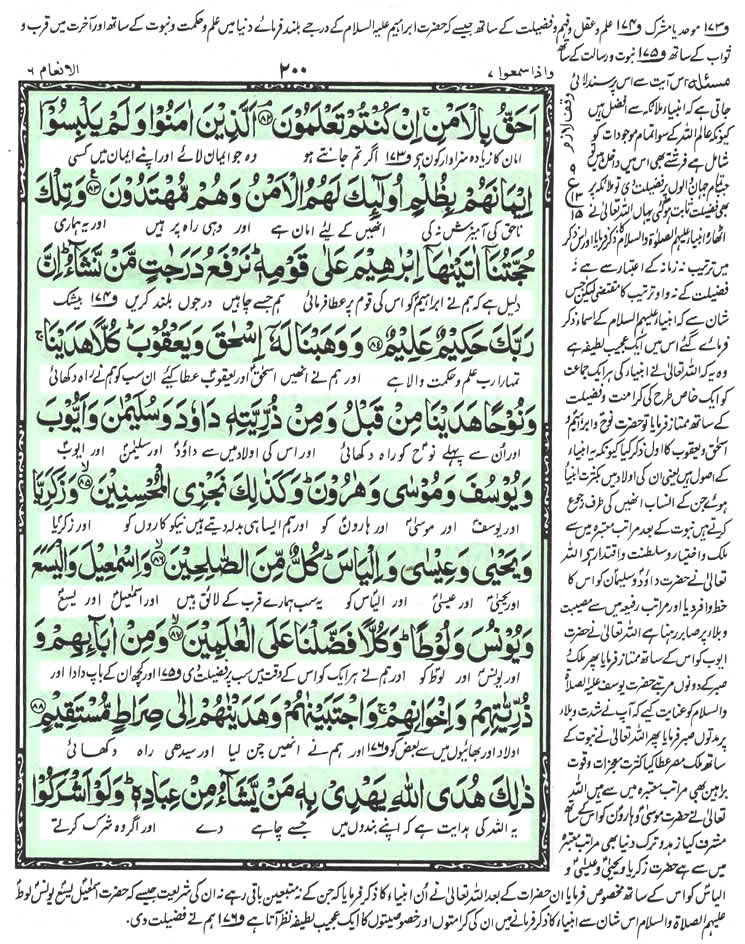 و١٧٣ موحد یا مشرک و١٧٤ علم و عقل و فہم و فضیلت کے ساتھ جیسے کہ حضرت ابراہیم علیہ السلام کے درجے بلند فرمائے دنیا میں علم و حکمت و نبوت کے ساتھ اور آخرت میں قرب و
ثواب کے ساتھ و١٧٥ نبوت و رسالت کے ساتھ
واذا سمعوا ٧
٢٠٠
الانعام ٦
اَحَقُّ بِالْاَمْنِ ۚ اِنْ كُنْتُمْ تَعْلَمُوْنَ ۘ﴿٨١﴾ اَلَّذِيْنَ اٰمَنُوْا وَلَمْ يَلْبِسُوْۤا
امان کا زیادہ سزاوار کون ہے و١٧٣ اگر تم جانتے ہو وہ جو ایمان لائے اور اپنے ایمان میں کسی
اِيْمَانَهُمْ بِظُلْمٍ اُولٰٓئِكَ لَهُمُ الْاَمْنُ وَهُمْ مُّهْتَدُوْنَ ﴿٨٢﴾ وَتِلْكَ
ناحق کی آمیزش نہ کی انھیں کے لیے امان ہے اور وہی راہ پر ہیں اور یہ ہماری
حُجَّتُنَاۤ اٰتَيْنٰهَاۤ اِبْرٰهِيْمَ عَلٰى قَوْمِهٖ ؕ نَرْفَعُ دَرَجٰتٍ مَّنْ نَّشَآءُ ؕ اِنَّ
دلیل ہے کہ ہم نے ابراہیم کو اس کی قوم پر عطا فرمائی ہم جسے چاہیں درجوں بلند کریں و١٧٤ بیشک
رَبَّكَ حَكِيْمٌ عَلِيْمٌ ﴿٨٣﴾ وَوَهَبْنَا لَهٗۤ اِسْحٰقَ وَيَعْقُوْبَ ؕ كُلًّا هَدَيْنَا ۚ
تمہارا رب علم و حکمت والا ہے اور ہم نے انھیں اسحٰق اور یعقوب عطا کیے ان سب کو ہم نے راہ دکھائی
وَنُوْحًا هَدَيْنَا مِنْ قَبْلُ وَمِنْ ذُرِّيَّتِهٖ دَاوٗدَ وَسُلَيْمٰنَ وَاَيُّوْبَ
اور اُن سے پہلے نوح کو راہ دکھائی اور اس کی اولاد میں سے داؤد اور سلیمٰن اور ایوب
وَيُوْسُفَ وَمُوْسٰى وَهٰرُوْنَ ؕ وَكَذٰلِكَ نَجْزِي الْمُحْسِنِيْنَ ﴿٨٤﴾ وَزَكَرِيَّا
اور یوسف اور موسیٰ اور ہارون کو اور ہم ایسا ہی بدلہ دیتے ہیں نیکو کاروں کو اور زکریا
وَيَحْيٰى وَعِيْسٰى وَاِلْيَاسَ ؕ كُلٌّ مِّنَ الصّٰلِحِيْنَ ﴿٨٥﴾ وَاِسْمٰعِيْلَ وَالْيَسَعَ
اور یحییٰ اور عیسیٰ اور الیاس کو یہ سب ہمارے قرب کے لائق ہیں اور اسمٰعیل اور یسع
وَيُوْنُسَ وَلُوْطًا ؕ وَكُلًّا فَضَّلْنَا عَلَى الْعٰلَمِيْنَ ﴿٨٦﴾ وَمِنْ اٰبَآئِهِمْ وَ
اور یونس اور لوط کو اور ہم نے ہر ایک کو اس کے وقت میں سب پر فضیلت دی و١٧٥ اور کچھ ان کے باپ دادا اور
ذُرِّيّٰتِهِمْ وَاِخْوَانِهِمْ ۚ وَاجْتَبَيْنٰهُمْ وَهَدَيْنٰهُمْ اِلٰى صِرَاطٍ مُّسْتَقِيْمٍ ﴿٨٧﴾
اولاد اور بھائیوں میں سے بعض کو و١٧٦ اور ہم نے انھیں چن لیا اور سیدھی راہ دکھائی
ذٰلِكَ هُدَى اللّٰهِ يَهْدِيْ بِهٖ مَنْ يَّشَآءُ مِنْ عِبَادِهٖ ؕ وَلَوْ اَشْرَكُوْا
یہ اللہ کی ہدایت ہے کہ اپنے بندوں میں جسے چاہے دے اور اگر وہ شرک کرتے
مسئلہ اس آیت سے اس پر سند لائی
جاتی ہے کہ انبیاء ملائکہ سے افضل ہیں
کیونکہ عالم اللہ کے سوا تمام موجودات کو
شامل ہے فرشتے بھی اس میں داخل ہیں
تو جب تمام جہان والوں پر فضیلت دی تو ملائکہ پر
بھی فضیلت ثابت ہو گئی یہاں اللہ تعالیٰ نے
اٹھارہ انبیاء علیہم الصلاۃ والسلام کا ذکر فرمایا اور اس ذکر
میں ترتیب نہ زمانہ کے اعتبار سے ہے نہ
فضیلت کے نہ واو ترتیب کا مقتضی لیکن جس
شان سے کہ انبیاء علیہم السلام کے اسماء ذکر
فرمائے گئے اس میں ایک عجیب لطیفہ ہے
وہ یہ کہ اللہ تعالیٰ نے انبیاء کی ہر ایک جماعت
کو ایک خاص طرح کی کرامت و فضیلت
کے ساتھ ممتاز فرمایا تو حضرت نوح و ابراہیم و
اسحٰق و یعقوب کا اول ذکر کیا کیونکہ یہ انبیاء
کے اصول ہیں یعنی ان کی اولاد میں بکثرت انبیاء
ہوئے جن کے انساب انھیں کی طرف رجوع
کرتے ہیں نبوت کے بعد مراتب معتبرہ میں سے
ملک و اختیار و سلطنت و اقتدار ہے اللہ
تعالیٰ نے حضرت داؤد و سلیمان کو اس کا
حظ وافر دیا اور مراتب رفیعہ میں سے مصیبت
و بلاء پر صابر رہنا ہے اللہ تعالیٰ نے حضرت
ایوب کو اس کے ساتھ ممتاز فرمایا پھر ملک و
صبر کے دونوں مرتبے حضرت یوسف علیہ الصلاۃ
والسلام کو عنایت کیے کہ آپ نے شدت و بلاء
پر مدتوں صبر فرمایا پھر اللہ تعالیٰ نے نبوت کے
ساتھ ملک مصر عطا کیا کثرت معجزات و قوت
براہین بھی مراتب معتبرہ میں سے ہیں اللہ
تعالیٰ نے حضرت موسیٰ و ہارون کو اس کے ساتھ
مشرف کیا زہد و ترک دنیا بھی مراتب معتبرہ
میں سے ہے حضرت زکریا و یحییٰ و عیسیٰ و
الیاس کو اس کے ساتھ مخصوص فرمایا ان حضرات کے بعد اللہ تعالیٰ نے اُن انبیاء کا ذکر فرمایا کہ جن کے نہ متبعین باقی رہے نہ ان کی شریعت جیسے کہ حضرت اسمٰعیل یسع یونس لوط
علیہم الصلاۃ والسلام اس شان سے انبیاء کا ذکر فرمانے میں ان کی کرامتوں اور خصوصیتوں کا ایک عجیب لطیفہ نظر آتا ہے و١٧٦ ہم نے فضیلت دی۔